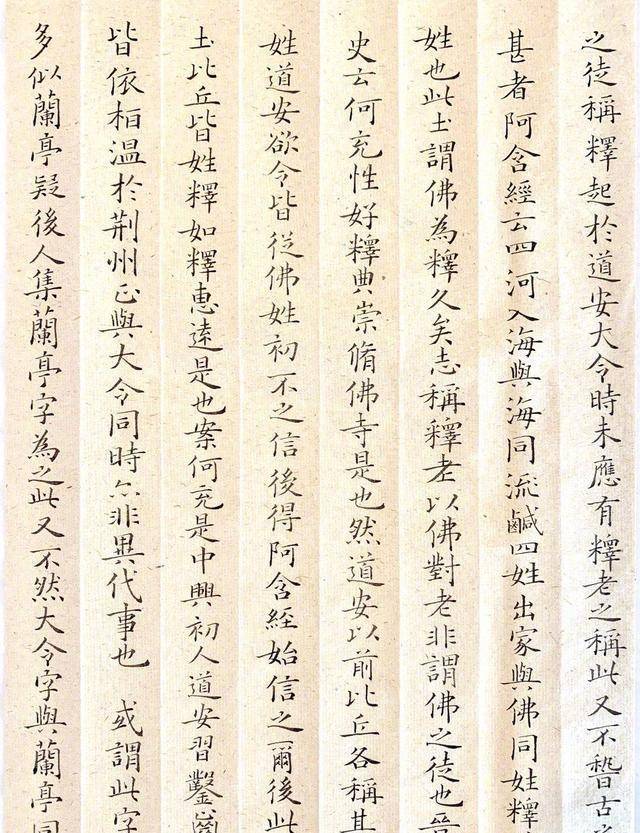 之徒稱釋起於道安大令時未應有釋老之稱此又不稽古之
甚者阿含經云四河入海與海同流鹹四姓出家與佛同姓釋
姓也此土謂佛為釋久矣志稱釋老以佛對老非謂佛之徒也晉
史云何充性好釋典崇脩佛寺是也然道安以前比丘各稱其
姓道安欲令皆從佛姓初不之信後得阿含經始信之爾後此
土比丘皆姓釋如釋惠遠是也案何充是中興初人道安習鑿齒
皆依桓溫於荊州正與大令同時亦非異代事也 或謂此字
多似蘭亭疑後人集蘭亭字為之此又不然大令字與蘭亭同